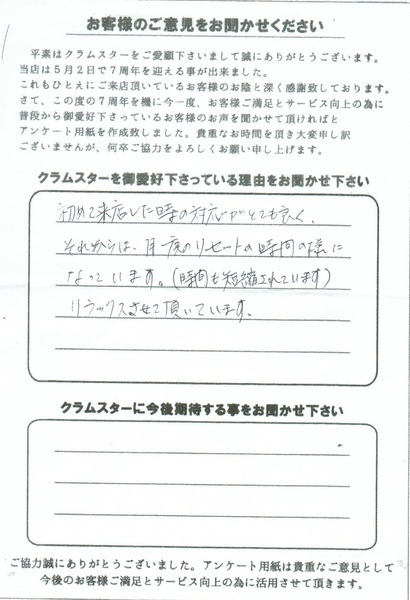 お客様のご意見をお聞かせください
平素はクラムスターをご愛願下さいまして誠にありがとうございます。
当店は5月2日で7周年を迎える事が出来ました。
これもひとえにご来店頂いているお客様のお陰と深く感謝致しております。
さて、この度の7周年を機に今一度、お客様ご満足とサービス向上の為に
普段から御愛好下さっているお客様のお声を聞かせて頂ければと
アンケート用紙を作成致しました。貴重なお時間を頂き大変申し訳
ございませんが、何卒ご協力をよろしくお願い申し上げます。
クラムスターを御愛好下さっている理由をお聞かせ下さい
初めて来店した時の対応がとても良く、
それからは、月一度のリセットの時間の様に
なっています。(時間も短縮されています)
リラックスさせて頂いています。
クラムスターに今後期待する事をお聞かせ下さい
ご協力誠にありがとうございました。アンケート用紙は貴重なご意見として
今後のお客様ご満足とサービス向上の為に活用させて頂きます。